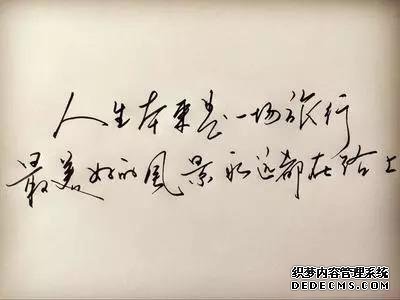 人生本来是一场旅行
最美好的风景永远都在路上
织梦内容管理系统
DEDECMS.COM